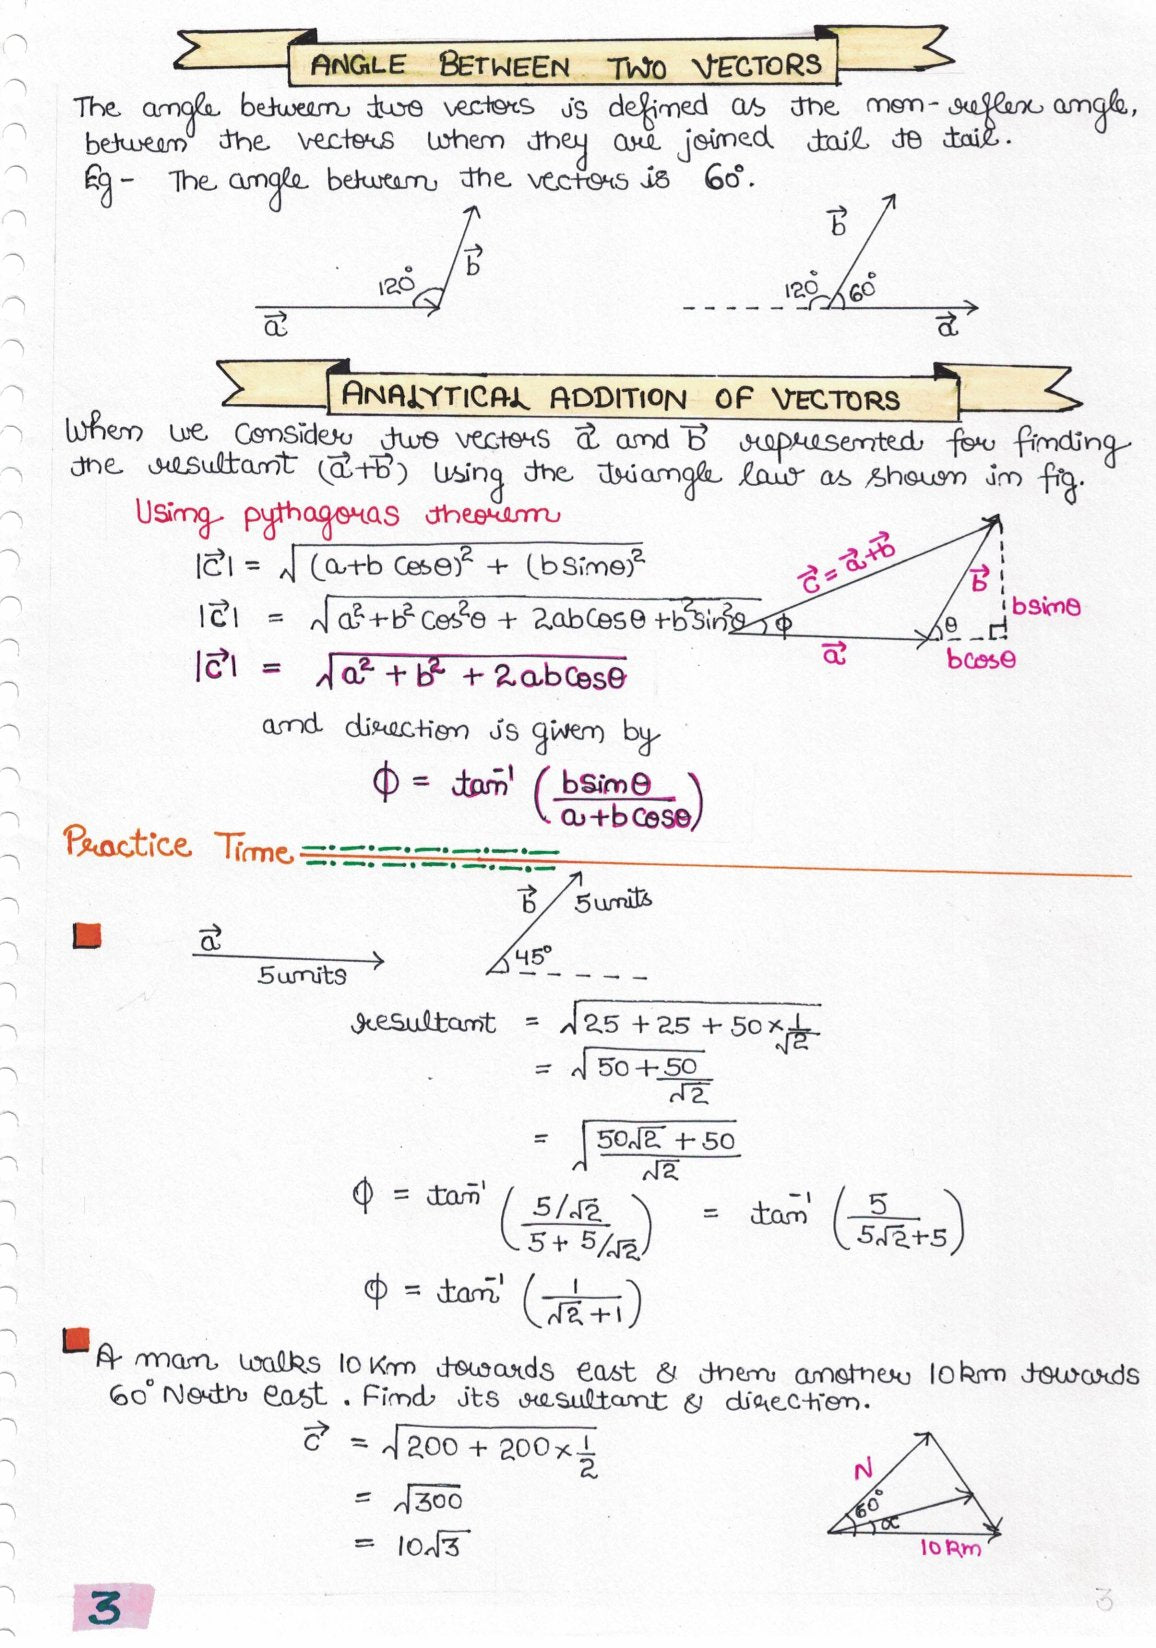 ANGLE BETWEEN TWO VECTORS
The angle between two vectors is defined as the non-reflex angle,
between the vectors when they are joined tail to tail.
Eg - The angle between the vectors is 60°.
b⃗
120° b⃗ 120° 60°
a⃗ a⃗
ANALYTICAL ADDITION OF VECTORS
When we consider two vectors a⃗ and b⃗ represented for finding
the resultant (a⃗+b⃗) using the triangle law as shown in fig.
Using pythagoras theorem
|c⃗| = √((a+b cosθ)² + (b sinθ)²)
c⃗ = a⃗+b⃗
b⃗
|c⃗| = √(a²+b² cos²θ + 2ab cosθ + b² sin²θ)
ϕ
θ
b sinθ
a⃗
b cosθ
|c⃗| = √(a² + b² + 2ab cosθ)
and direction is given by
ϕ = tan⁻¹ (b sinθ / a+b cosθ)
Practice Time
b⃗ 5 units
a⃗
5 units
45°
resultant = √(25 + 25 + 50 × 1/√2)
= √(50 + 50/√2)
= √((50√2 + 50)/√2)
ϕ = tan⁻¹ ((5/√2) / (5 + 5/√2)) = tan⁻¹ (5 / (5√2+5))
ϕ = tan⁻¹ (1 / (√2+1))
A man walks 10 Km towards east & then another 10 km towards
60° North east. Find its resultant & direction.
c⃗ = √(200 + 200 × 1/2)
= √300
= 10√3
N
60°
α
10 Km
3
3